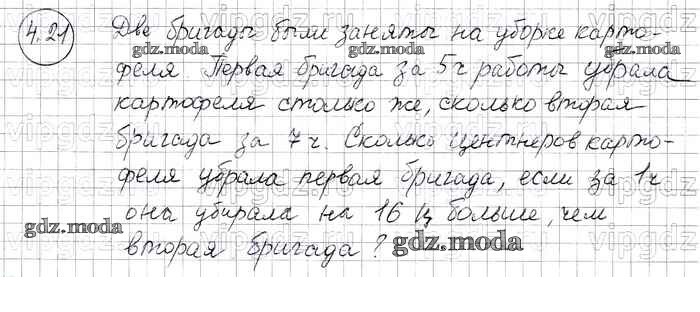 4.21 Две бригады были заняты на уборке карто-
феля. Первая бригада за 5ч работы убрала
картофеля столько же, сколько вторая
бригада за 7ч. Сколько центнеров карто-
феля убрала первая бригада, если за 1ч
она убирала на 16 ц больше, чем
вторая бригада?
gdz.moda
gdz.moda
gdz.moda
gdz.moda
gdz.moda
gdz.moda